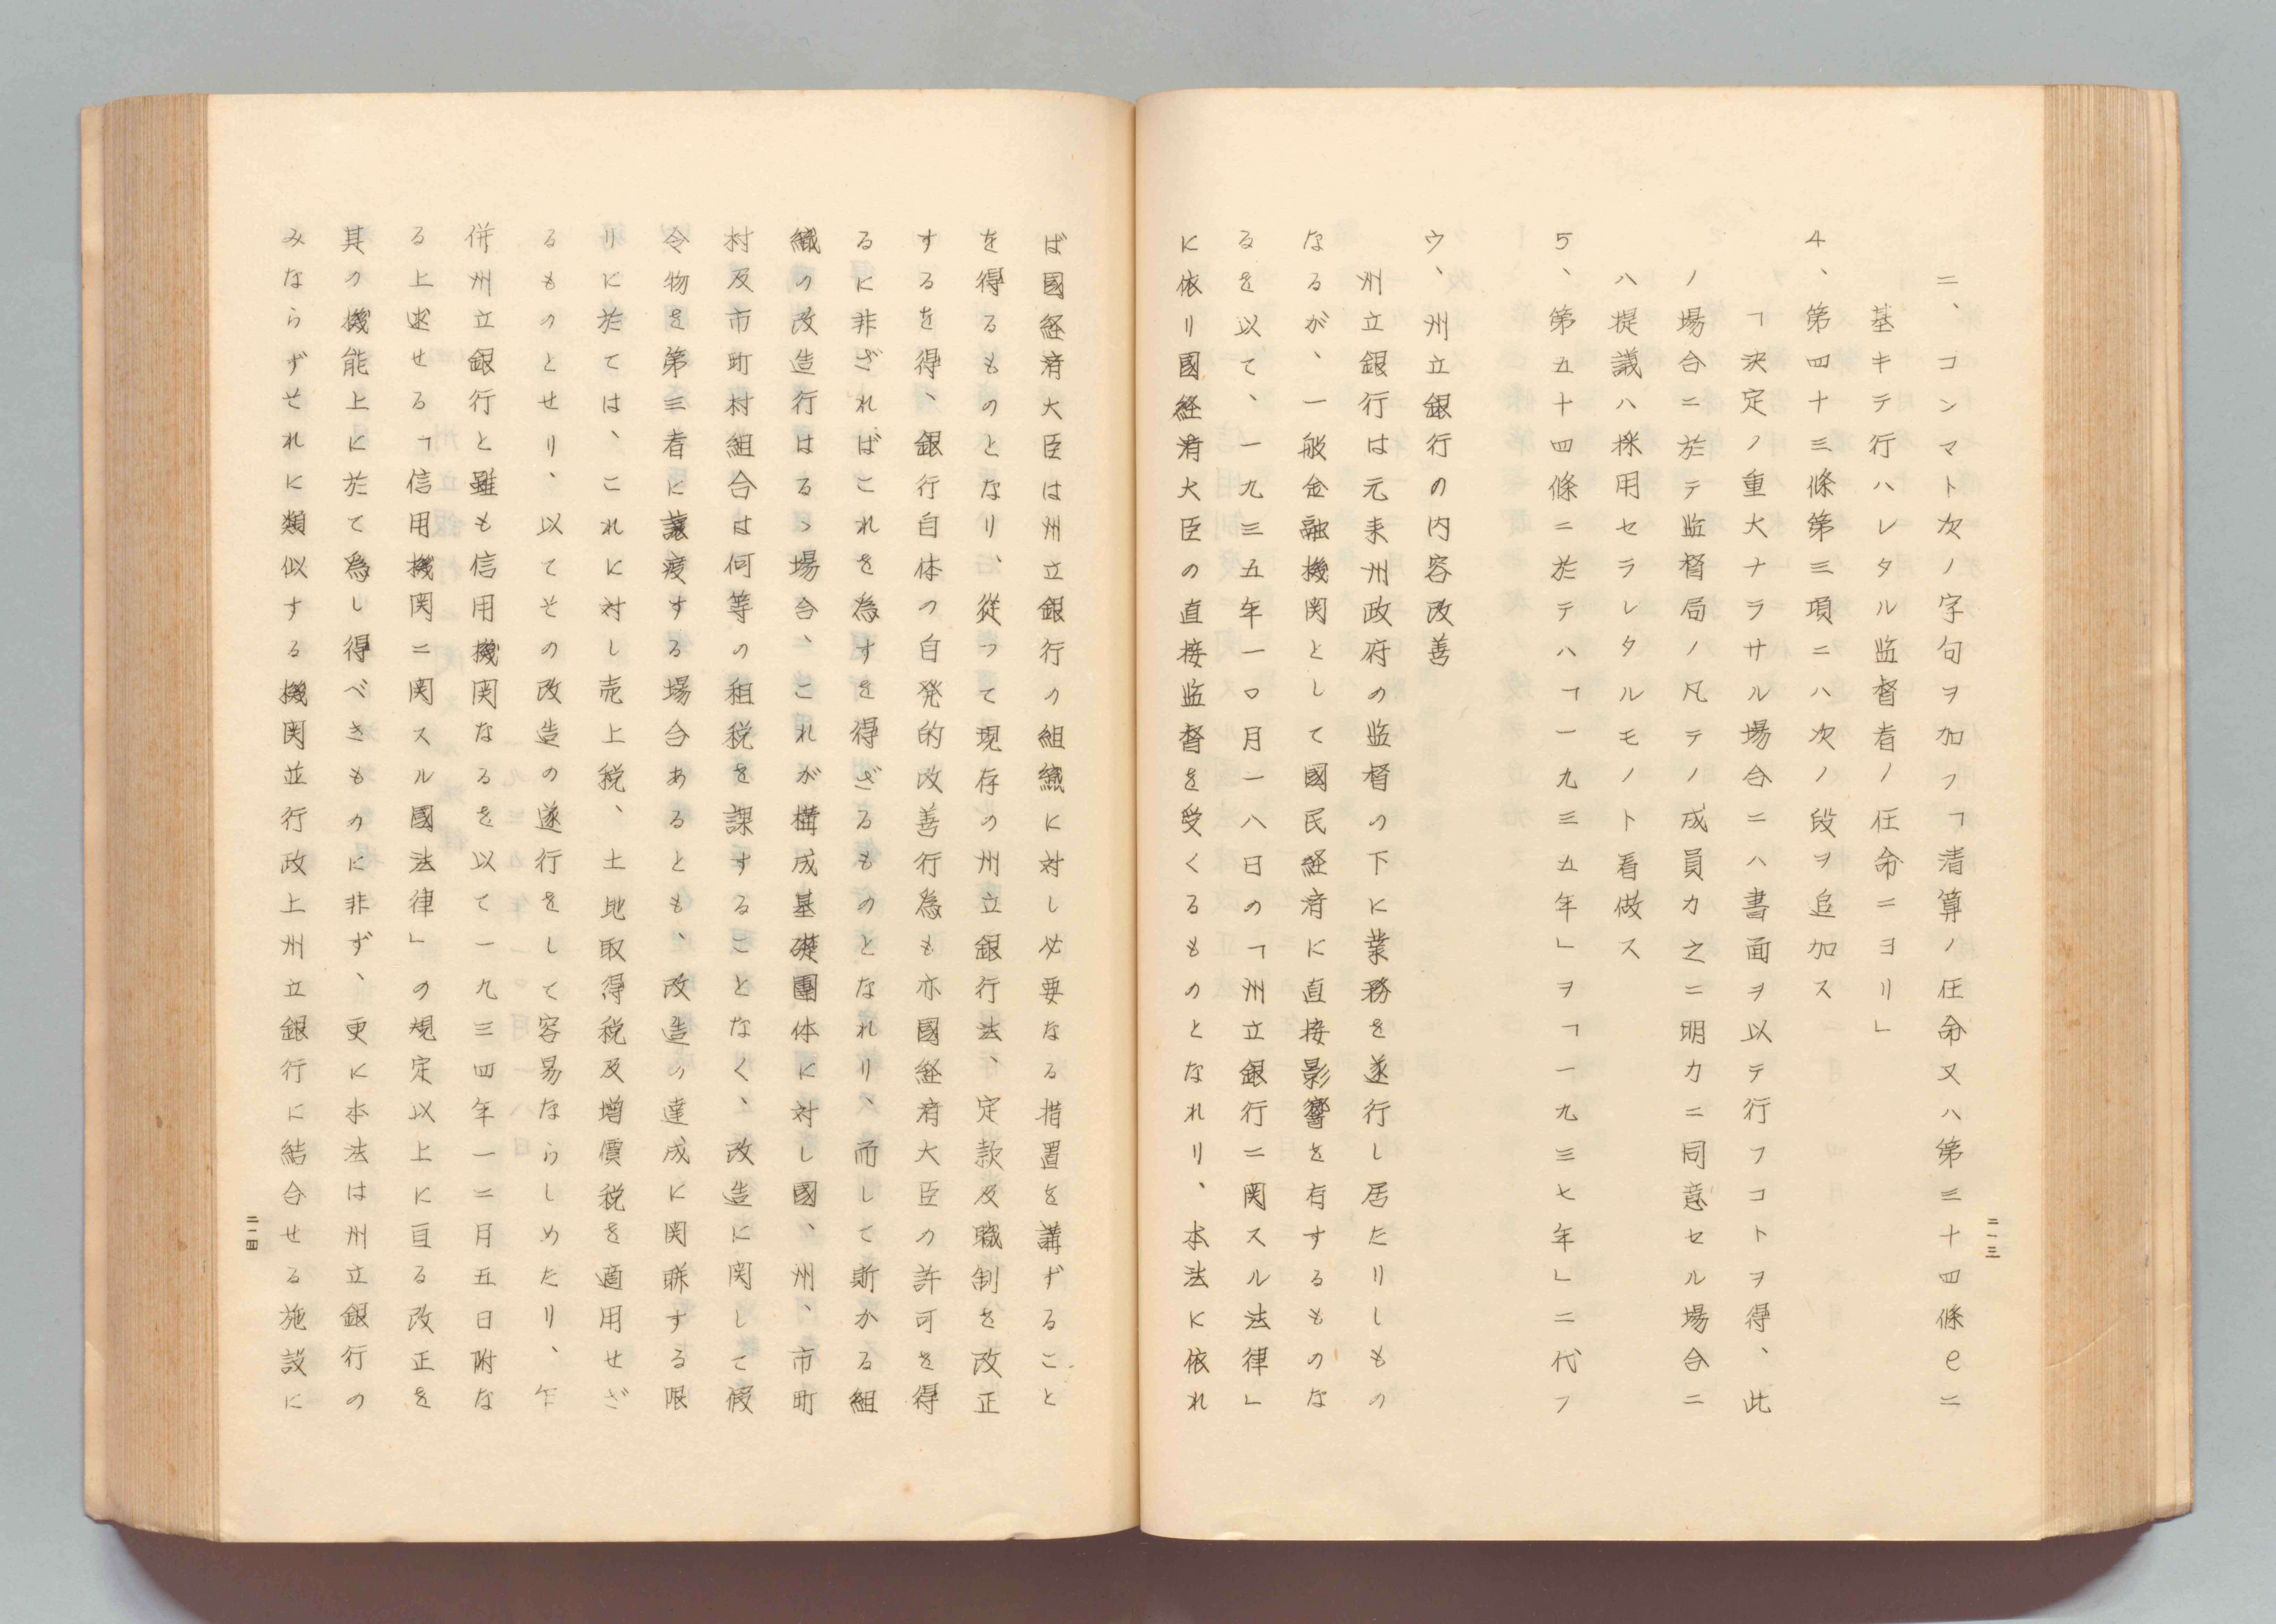 二一三
ニ、コンマト次ノ字句ヲ加フ「清算ノ任命又ハ第三十四條eニ
基キテ行ハレタル監督者ノ任命ニヨリ」
4、第四十三條第三項ニハ次ノ段ヲ追加ス
「決定ノ重大ナラサル場合ニハ書面ヲ以テ行フコトヲ得、此
ノ場合ニ於テ監督局ノ凡テノ成員カ之ニ明カニ同意セル場合ニ
ハ提議ハ採用セラレタルモノト看做ス
5、第五十四條ニ於テハ「一九三五年」ヲ「一九三七年」ニ代フ
ウ、州立銀行の内容改善
州立銀行は元来州政府の監督の下に業務を遂行し居たりしもの
なるが、一般金融機関として國民経済に直接影響を有するものな
るを以て、一九三五年一〇月一八日の「州立銀行ニ関スル法律」
に依リ國経済大臣の直接監督を受くるものとなれリ、本法に依れ
ば國経済大臣は州立銀行の組織に対し必要なる措置を講ずること
を得るものとなり、從つて現存の州立銀行法、定款及職制を改正
するを得、銀行自体の自発的改善行為も亦國経済大臣の許可を得
るに非ざればこれを為すを得ざるものとなれり、而して斯かる組
織の改造行はるゝ場合、これが構成基礎團体に対し國、州、市町
村及市町村組合は何等の租税を課することなく、改造に関して假
令物を第三者に譲渡する場合あるとも、改造の達成に関聯する限
リに於ては、これに対し売上税、土地取得税及増價税を適用せざ
るものとせり、以てその改造の遂行をして容易ならしめたり、乍
併州立銀行と雖も信用機関なるを以て一九三四年一二月五日附な
る上述せる「信用機関ニ関スル國法律」の規定以上に亘る改正を
其の機能上に於て為し得べきものに非ず、更に本法は州立銀行の
みならずそれに類似する機関並行政上州立銀行に結合せる施設に
二一四